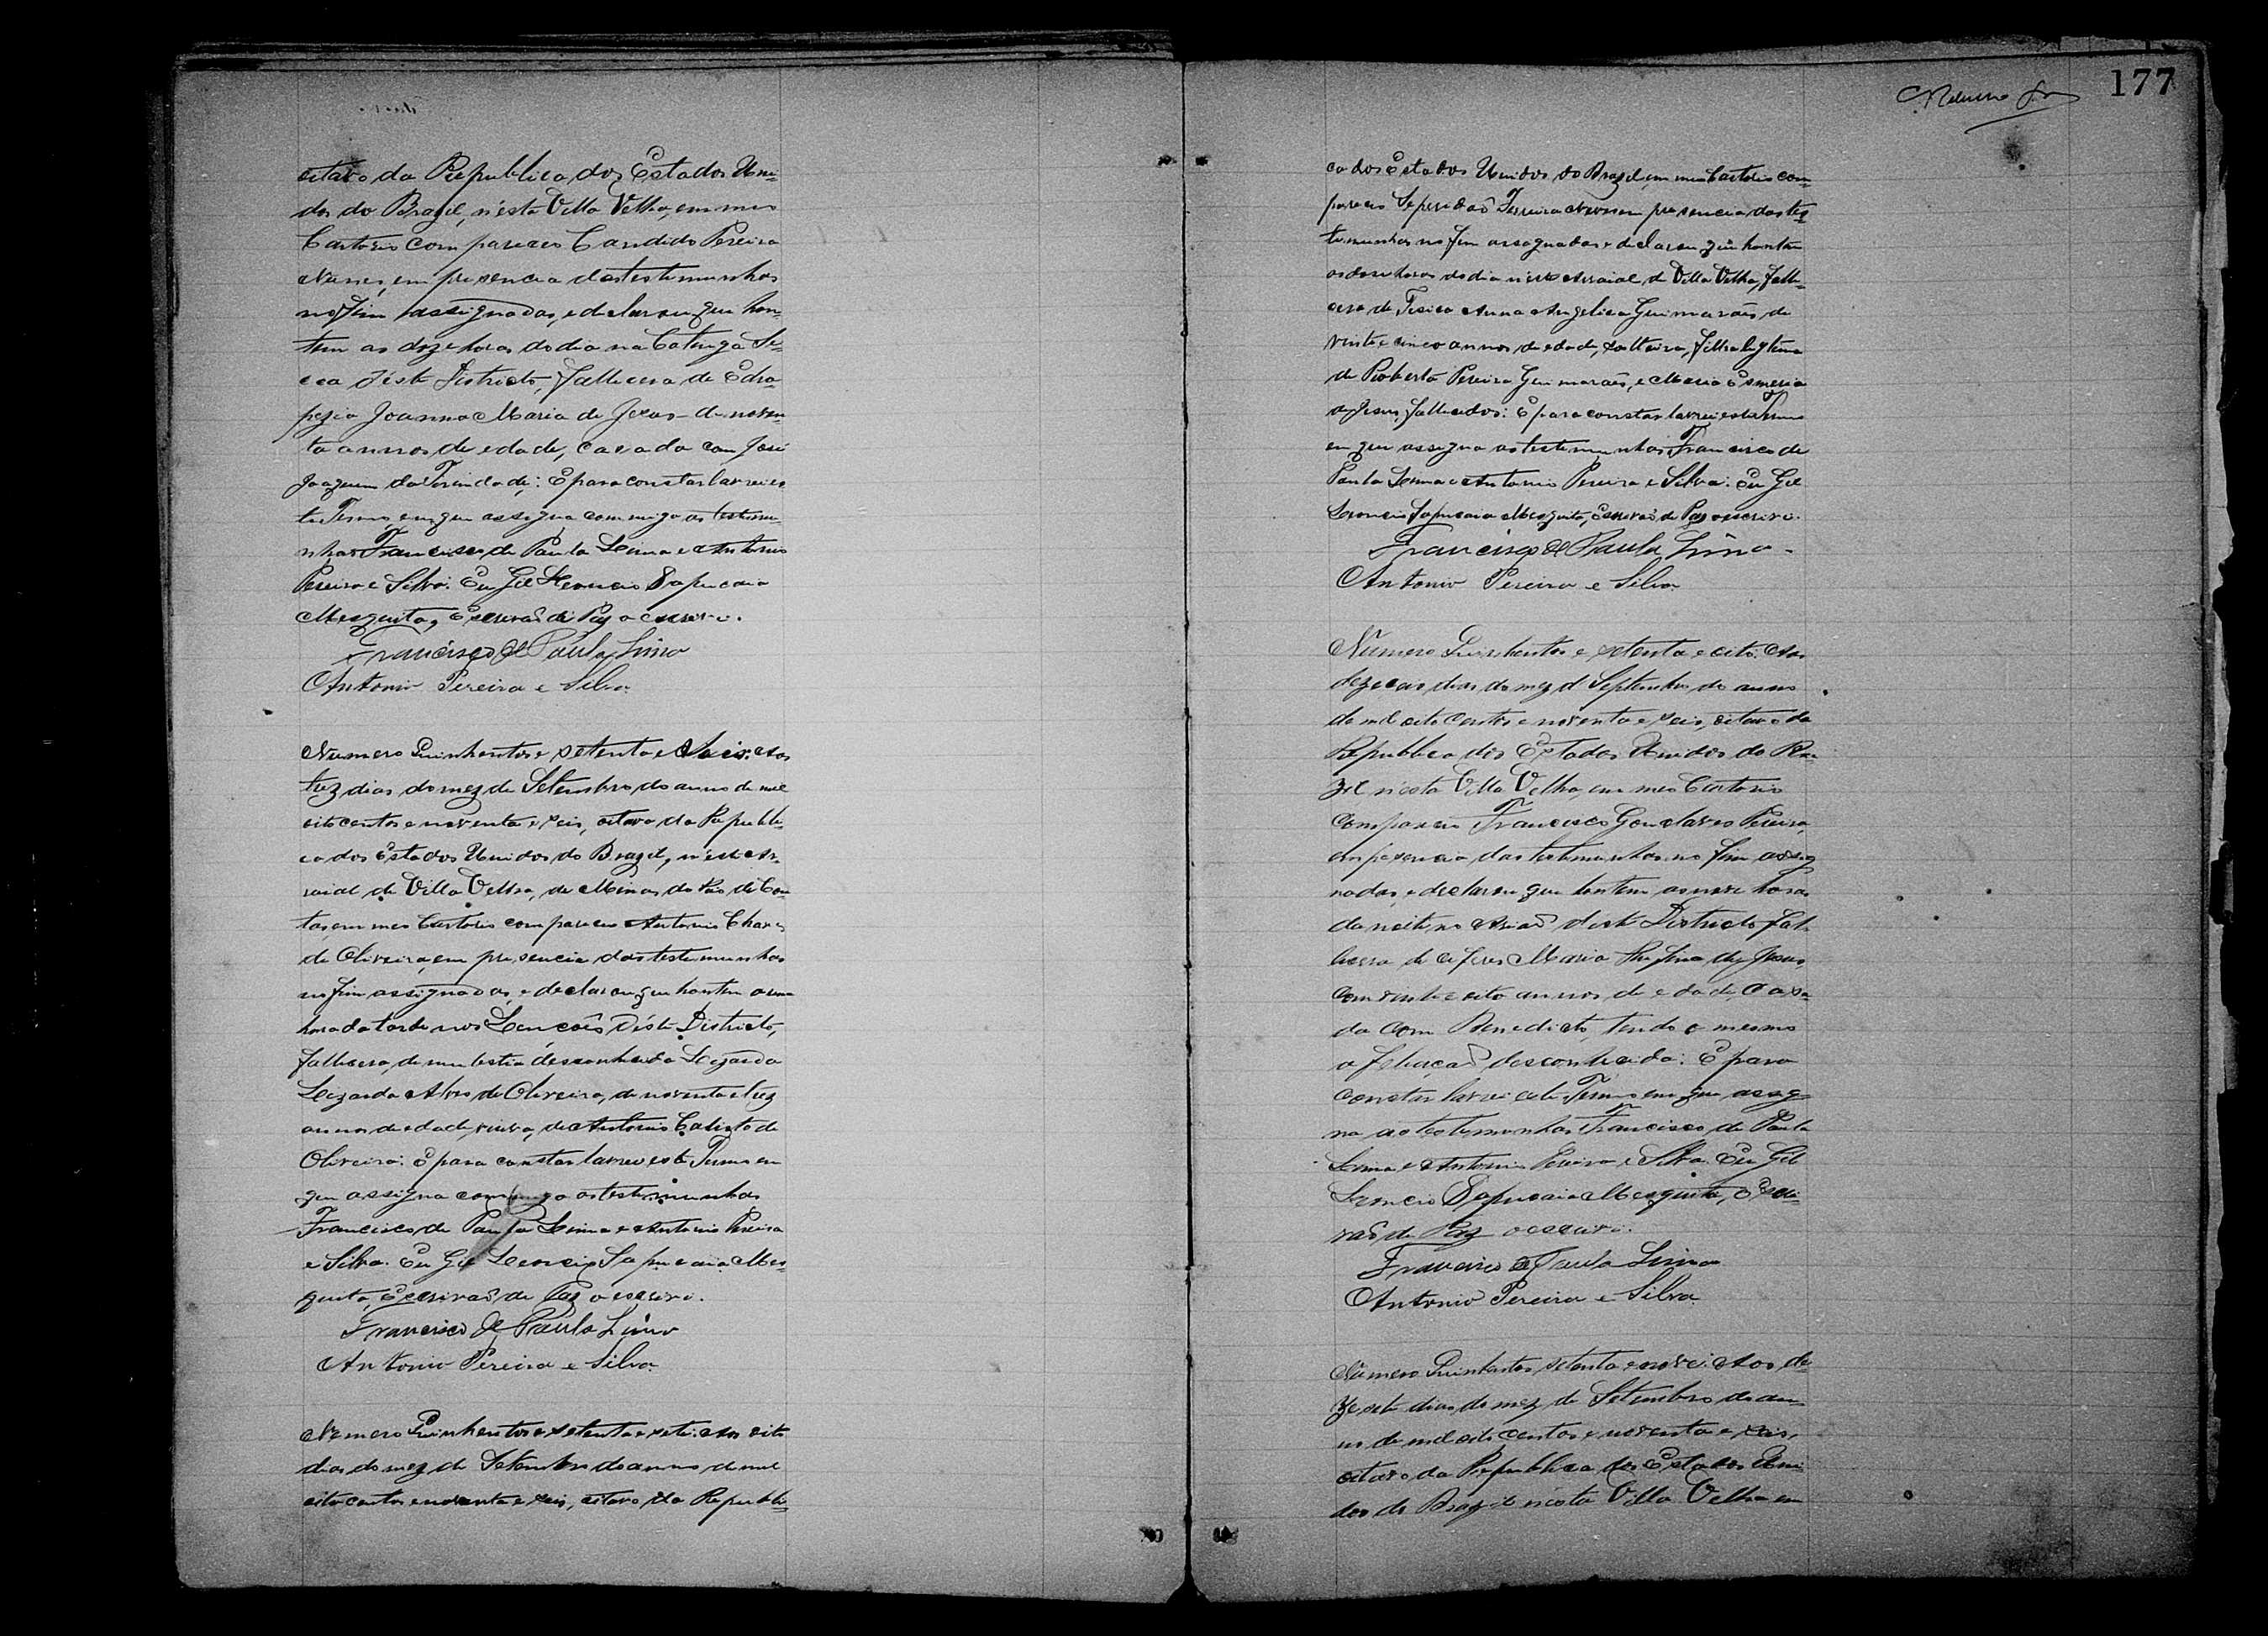 oitavo da Republica dos Estados Uni-
dos do Brazil, n'esta Villa Velha, em meu
Cartorio compareceo Candido Pereira
Nunes, em presencia das testemunhas
no fim assignadas, e declarou que hon-
tem as doze horas do dia na Catinga Se-
cca d'este Districto, fallecera de Edro-
pezia Joanna Maria de Jesus de noven-
ta annos de edade, casada com José
Joaquim da Trindade: E para constar lavrei es-
te Termo em que assigna commigo as testemu-
nhas Francisco de Paula Lima e Antonio
Pereira e Silva. Eu Gil Leoncio Sapucaia
Mesquita, Escrivaõ de Paz o escrevi.
Francisco de Paula Lima
Antonio Pereira e Silva
Numero Quinhentos e setenta e Seis: Aos
trez dias do mez de Setembro do anno de mil
oitocentos e noventa e seis, oitavo da Republi-
ca dos Estados Unidos do Brazil, n'este Ar-
raial de Villa Velha, de Minas do Rio de Con-
tas, em meu Cartorio compareceo Antonio
de Oliveira, em presencia das testemunhas
no fim assignadas, e declarou que hontem a uma
hora da tarde nos Lençoês d'este Districto,
fallecera, de molestia desconhecida
Alves de Oliveira, de noventa e trez
annos de edade, viuva, de Antonio Calisto de
Oliveira: E para constar lavrei este Termo em
que assigna commigo as testemunhas
Francisco de Paula Lima e Antonio Pereira
e Silva. Eu Gil Leoncio Sapucaia Mes-
quita, Escrivaõ de Paz o escrevi.
Francisco de Paula Lima
Antonio Pereira e Silva
Numero Quinhentos e setenta e sete: Aos oito
dias do mez de Setembro do anno de mil
oito centos e noventa e seis, oitavo da Republi-
177
ca dos Estados Unidos do Brazil, em meu Cartorio com-
pareceo Ferreira em presencia das tes-
temunhas no fim assignadas e declarou que hontem
as doze horas do dia n'este Arraial de Villa Velha, falle-
cera de Tisica Anna Angelica Guimarães de
vinte e cinco annos de edade, solteira, filha legitima
de Roberto Pereira Guimarães, e Maria Esmeria
de Jesus, fallecidos: E para constar lavrei este Termo
em que assigna as testemunhas Francisco de
Paula Lima e Antonio Pereira e Silva: Eu Gil
Leoncio Sapucaia Mesquita, Escrivaõ de Paz o escrevi.
Francisco de Paula Lima
Antonio Pereira e Silva
Numero Quinhentos e setenta e oito. Aos
dezeceis dias do mez de Septembro do anno
de mil oito centos e noventa e seis, oitavo da
Republica dos Estados Unidos do Bra-
zil n'esta Villa Velha, em meu Cartorio
compareceo Francisco Gonçalves Pereira,
em presencia das testemunhas no fim assig-
nadas, e declarou que hontem as nove horas
da noite, no d'este Districto fal-
lecera de Maria de Jesus,
com vinte e oito annos de edade, casa-
da com Benedicto, tendo o mesmo
a feliaçaõ desconhecida: E para
constar lavrei este Termo em que assig-
na as testemunhas Francisco de Paula
Lima e Antonio Pereira e Silva. Eu Gil
Leoncio Sapucaia Mesquita, Escri-
vaõ de Paz o escrevi.
Francisco de Paula Lima
Antonio Pereira e Silva
Numero Quinhentos, setenta e nove: Aos de-
zesete dias do mez de Setembro do an-
no de mil oito centos e noventa e seis,
oitavo da Republica dos Estados Uni-
dos do Brazil n'esta Villa Velha em